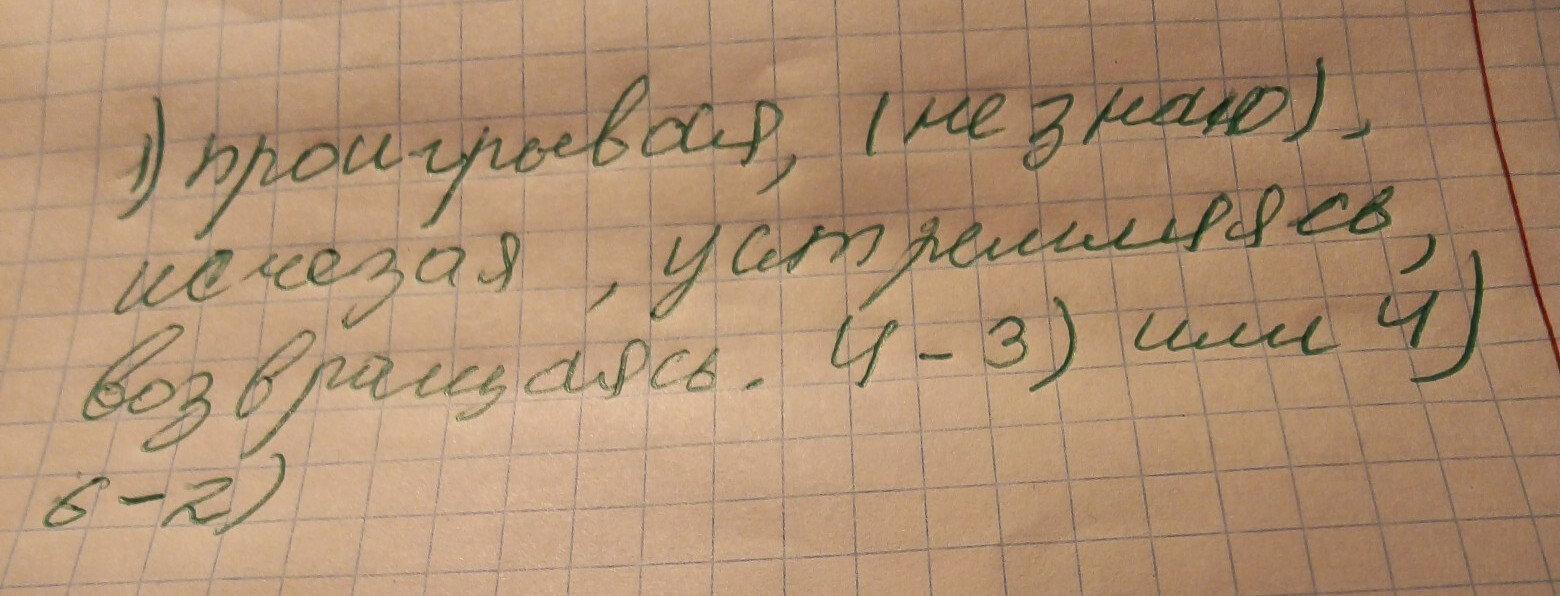 1) проигрывая, (не знаю),
исчезая, устремляясь,
возвращаясь. 4-3) или 4)
6-2)